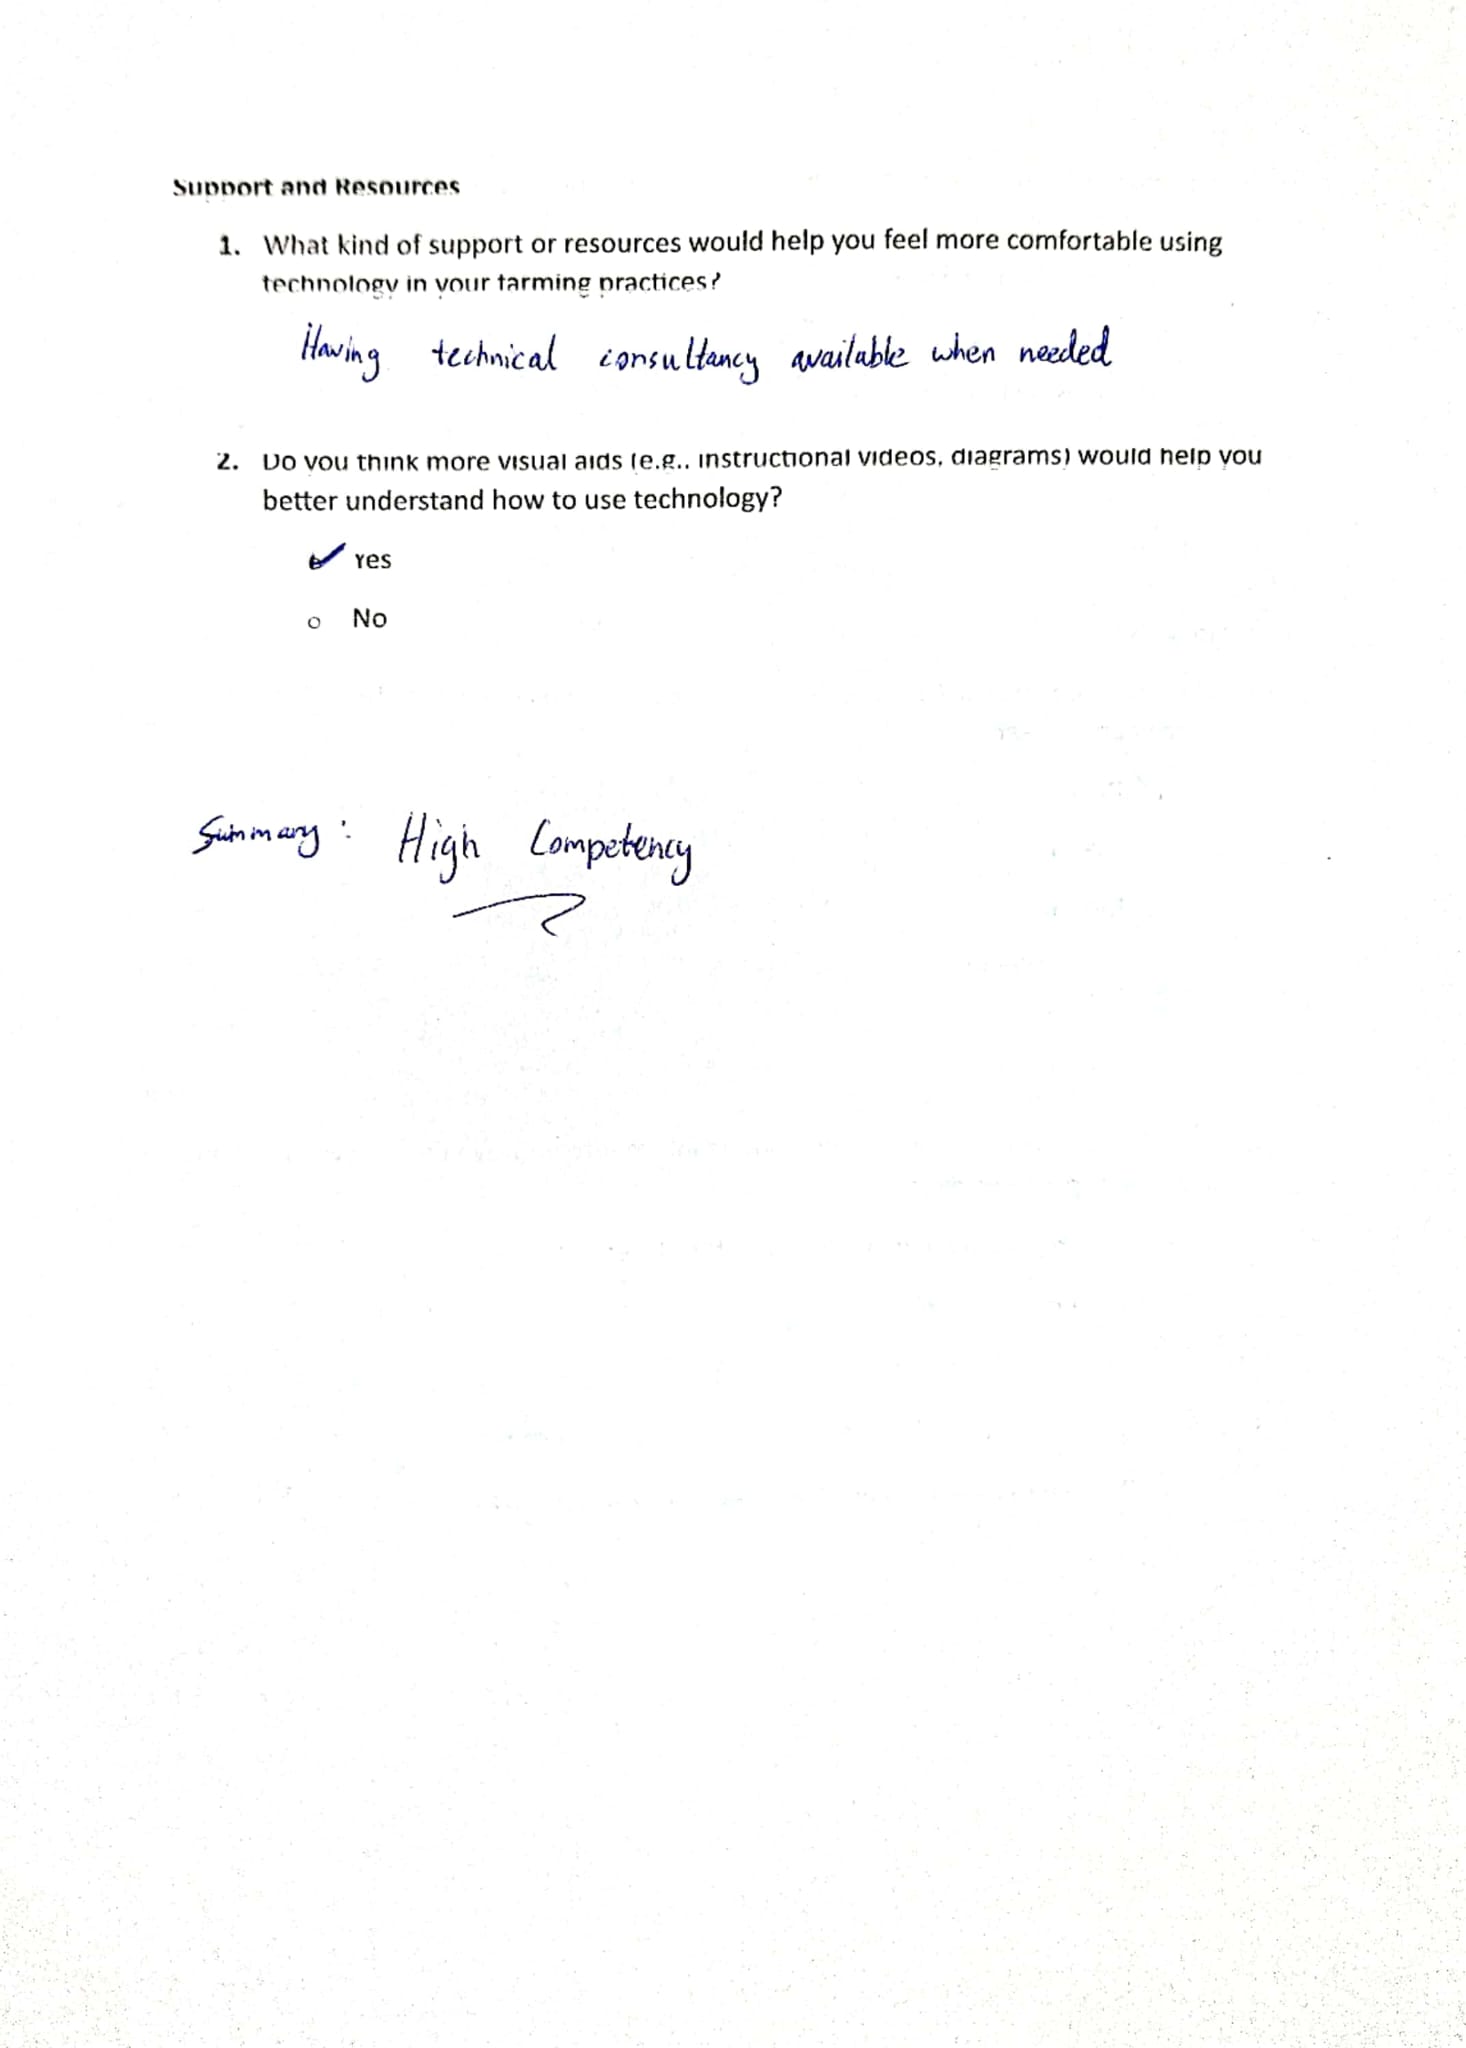 Support and Resources
1. What kind of support or resources would help you feel more comfortable using
technology in your farming practices?
Having technical consultancy available when needed
2. Do you think more visual aids (e.g., instructional videos, diagrams) would help you
better understand how to use technology?
✓ Yes
o No
Summary: High Competency